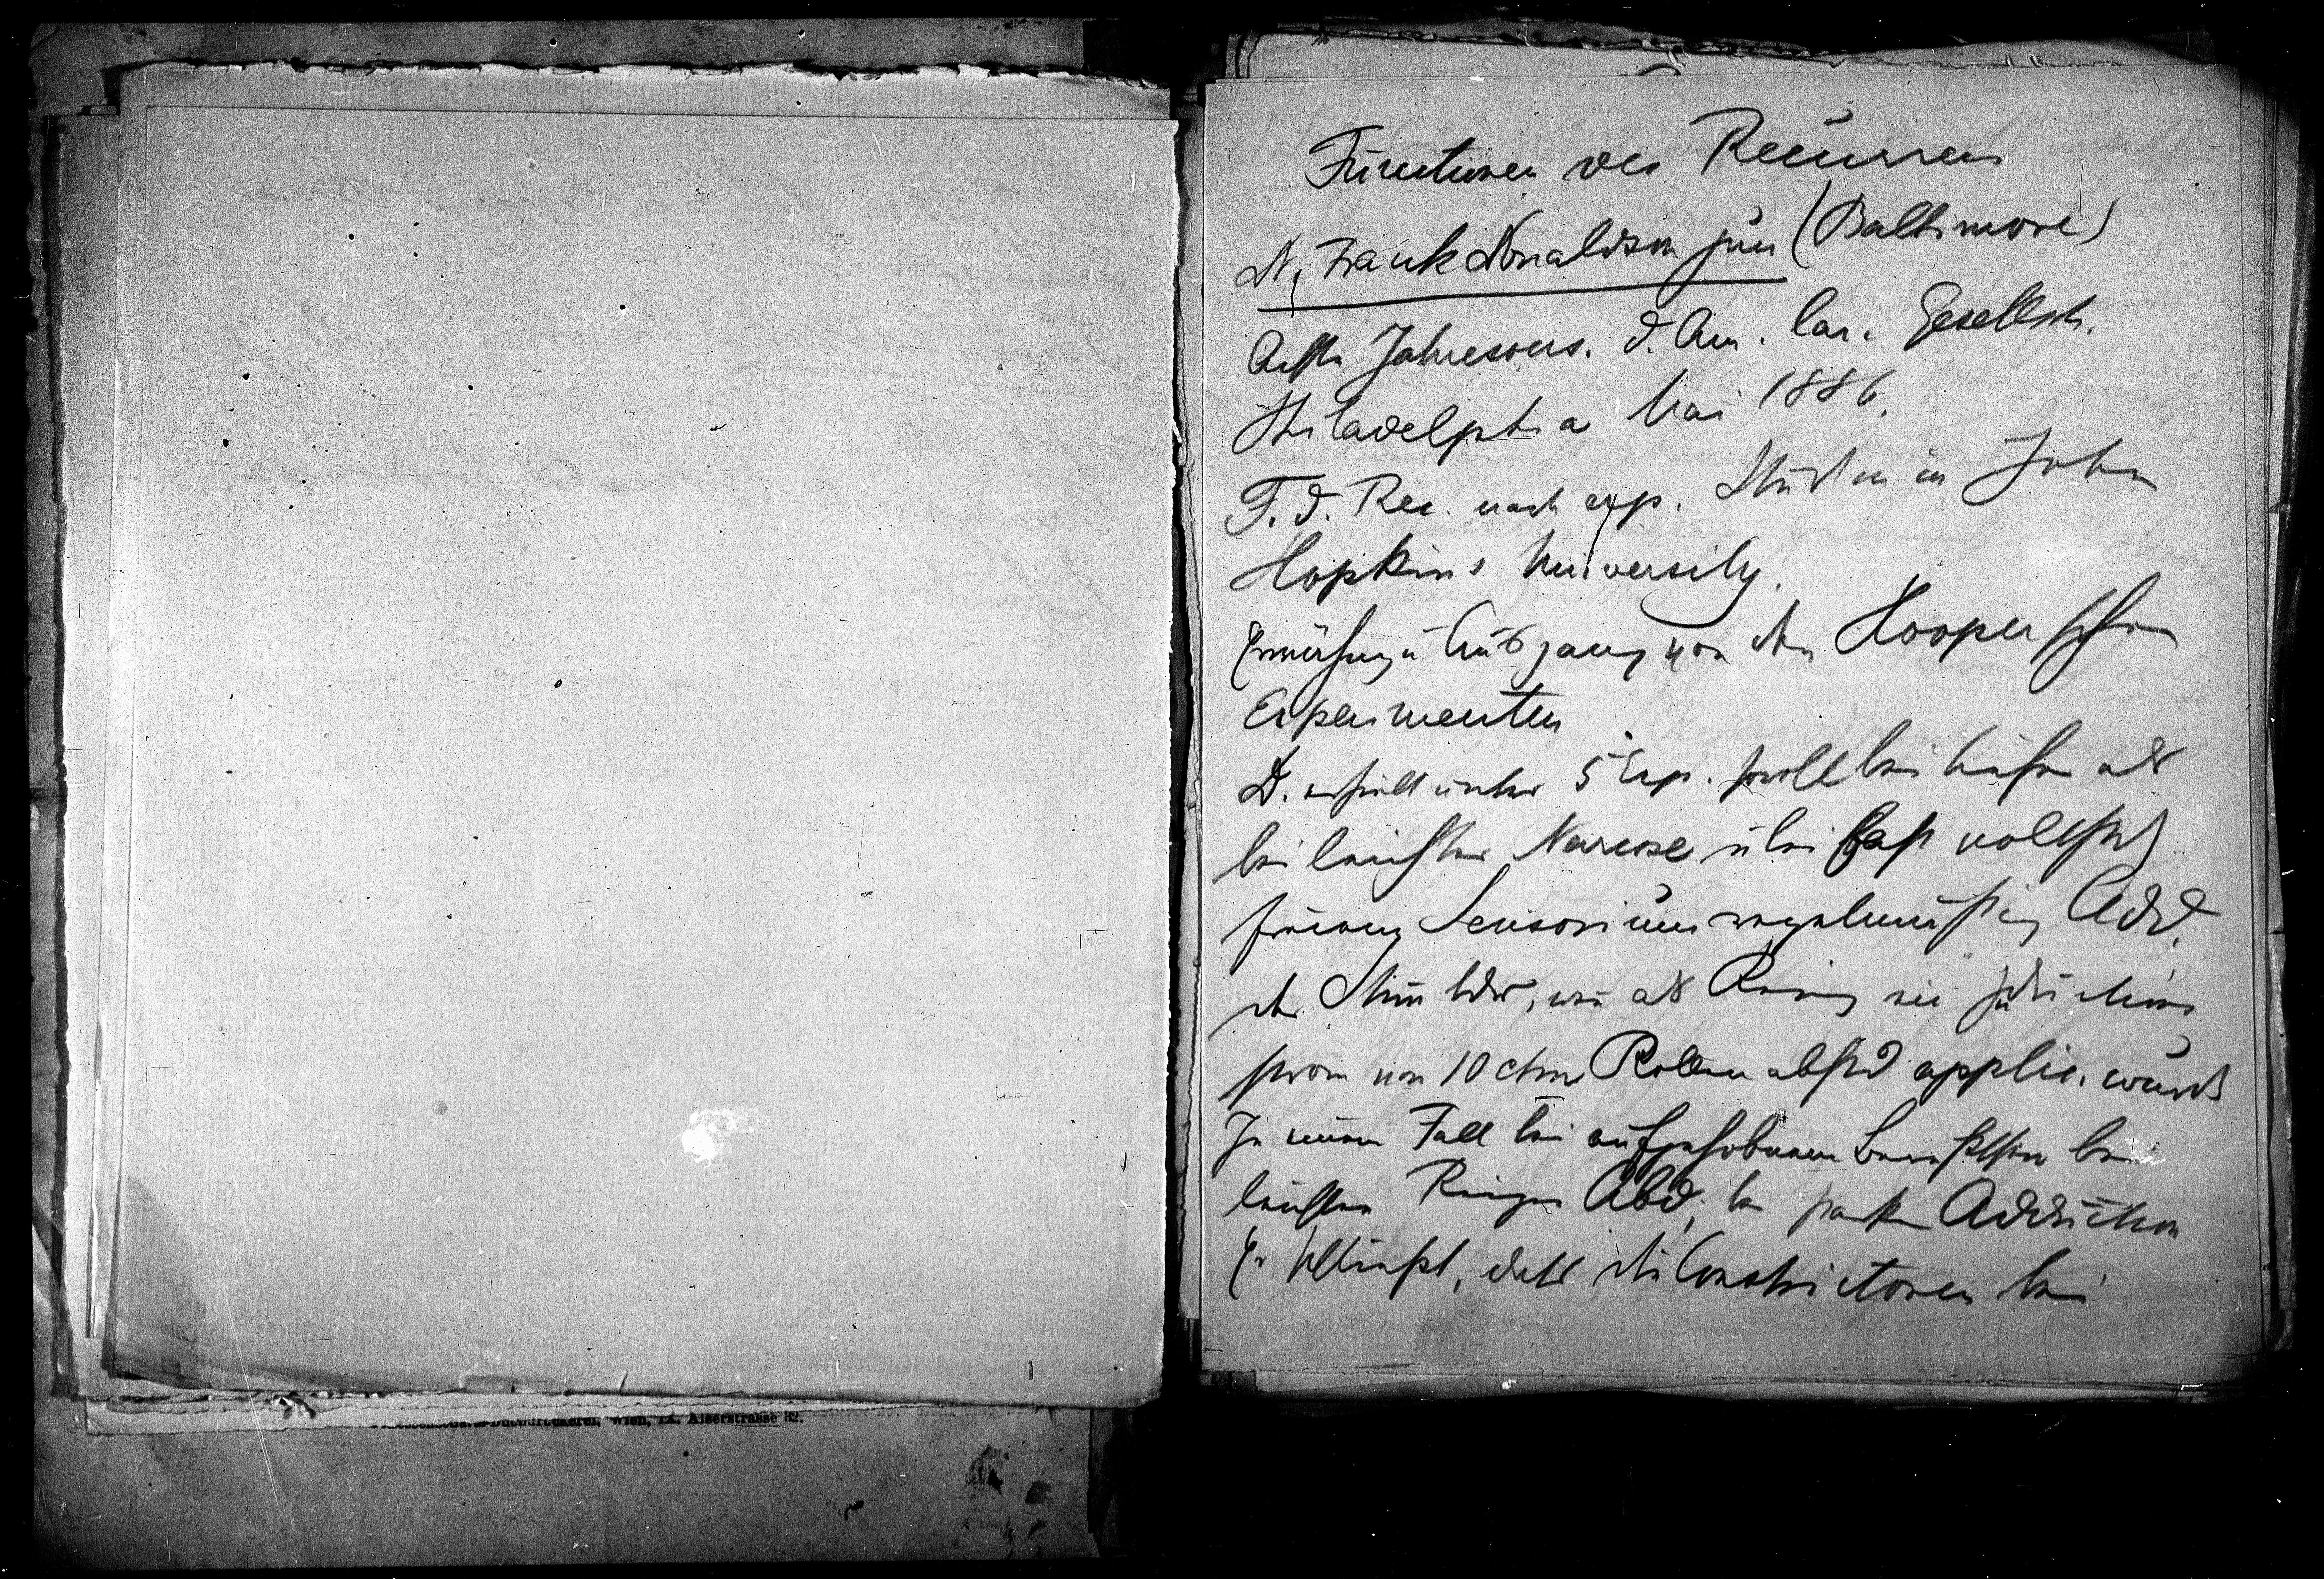 Functionen des Recurrens
D. Frank Donaldson jun (Baltimore)
Achte Jahresvers. d. Am. lar. Gesellsch.
Philadelphia Mai 1886.
F. d. Rec. nach exp. Studien in John
Hopkins University.
u Ausgang von den Hooper'schen
Experimenten
D. erhielt unter 5 Exp. sowohl bei als
bei leichter Narcose u bei fast vollst
freiem Sensorium regelmäßig Add.
der Stimmbdr, wenn als Reiz ein Inductions
strom von 10 ctm Rollenabstd applic. wurde
In einem Fall bei aufgehobenem Bewußtsein bei
leichten Reizen Abd, bei starken Adduction
Er schließt, daß die Constrictoren bei
Wien, IX. Alserstrasse 32.